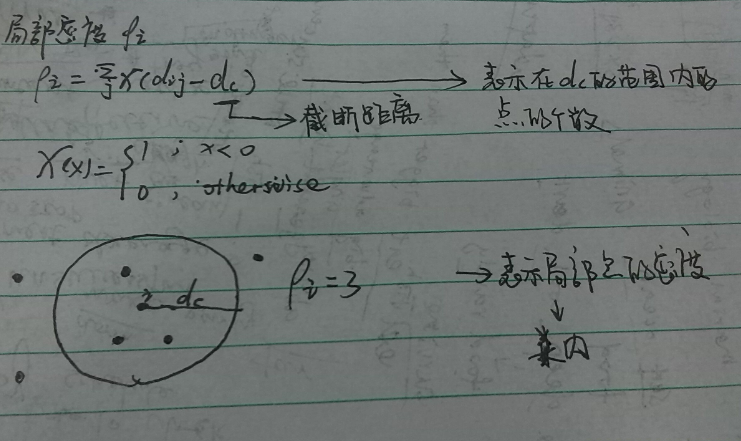 局部密度 ρi
ρi = Σj χ(dij - dc) → 表示在dc的范围内的
→ 截断距离 点的个数
χ(x) = { 1 ; x<0
0 , otherwise
i dc ρi = 3 → 表示局部点的密度
↓
类内